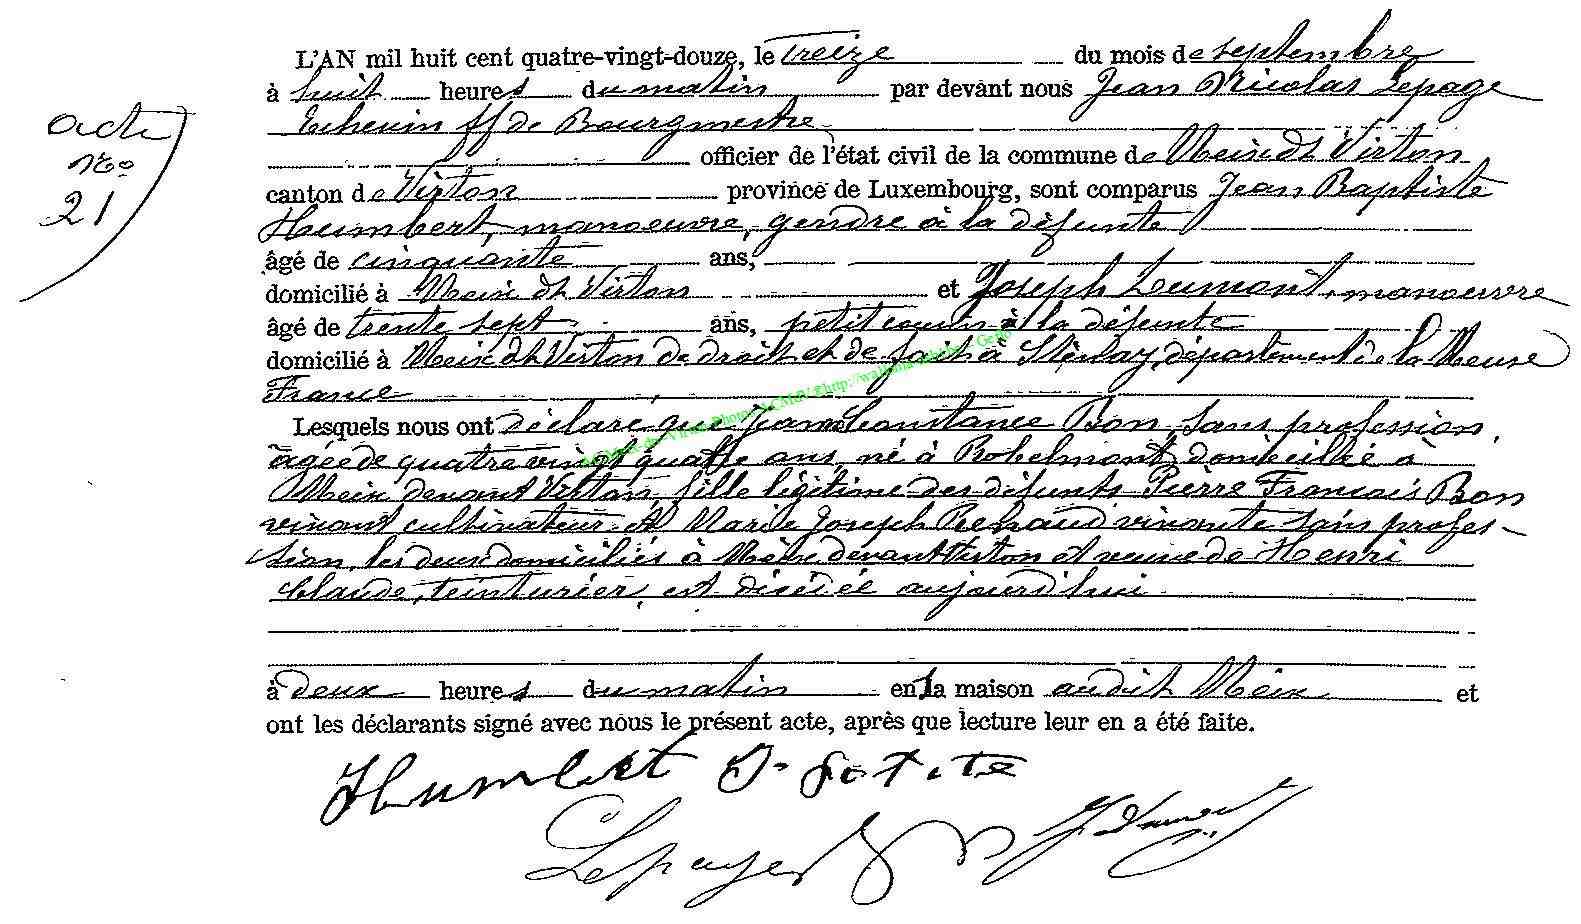 L'AN mil huit cent quatre-vingt-douze, le treize du mois de septembre
à huit heures du matin par devant nous Jean Nicolas Lepage
Echevin ff de Bourgmestre
officier de l'état civil de la commune de Meix dt Virton
canton de Virton province de Luxembourg, sont comparus Jean Baptiste
Humbert, manoeuvre, gendre à la défunte
âgé de cinquante ans,
domicilié à Meix dt Virton et Joseph Dumont, manoeuvre
âgé de trente sept ans, petit cousin à la défunte
domicilié à Meix dt Virton de droit et de fait à Stenay, département de la Meuse
France
Lesquels nous ont déclaré que Constance Bon, sans profession,
âgée de quatre vingt quatre ans, né à Robelmont, domiciliée à
Meix devant Virton, fille légitime des défunts Pierre François Bon
vivant cultivateur et Marie Joseph vivante sans profes-
sion, les deux domiciliés à Meix devant Virton et veuve de Henri
Claude, teinturier, est décédée aujourd'hui
à deux heures du matin en la maison audit Meix et
ont les déclarants signé avec nous le présent acte, après que lecture leur en a été faite.
acte
No
21
Humbert J-
Lepage